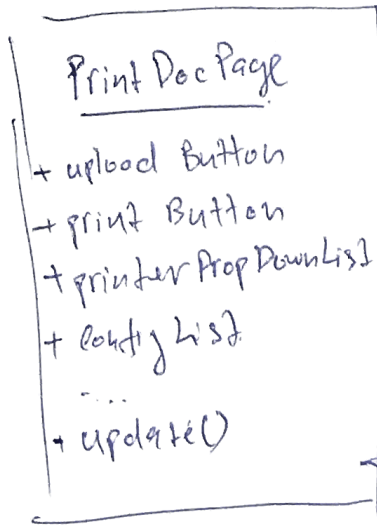 Print Doc Page
+ upload Button
+ print Button
+ printerDropDownList
+ config List
....
+ update()